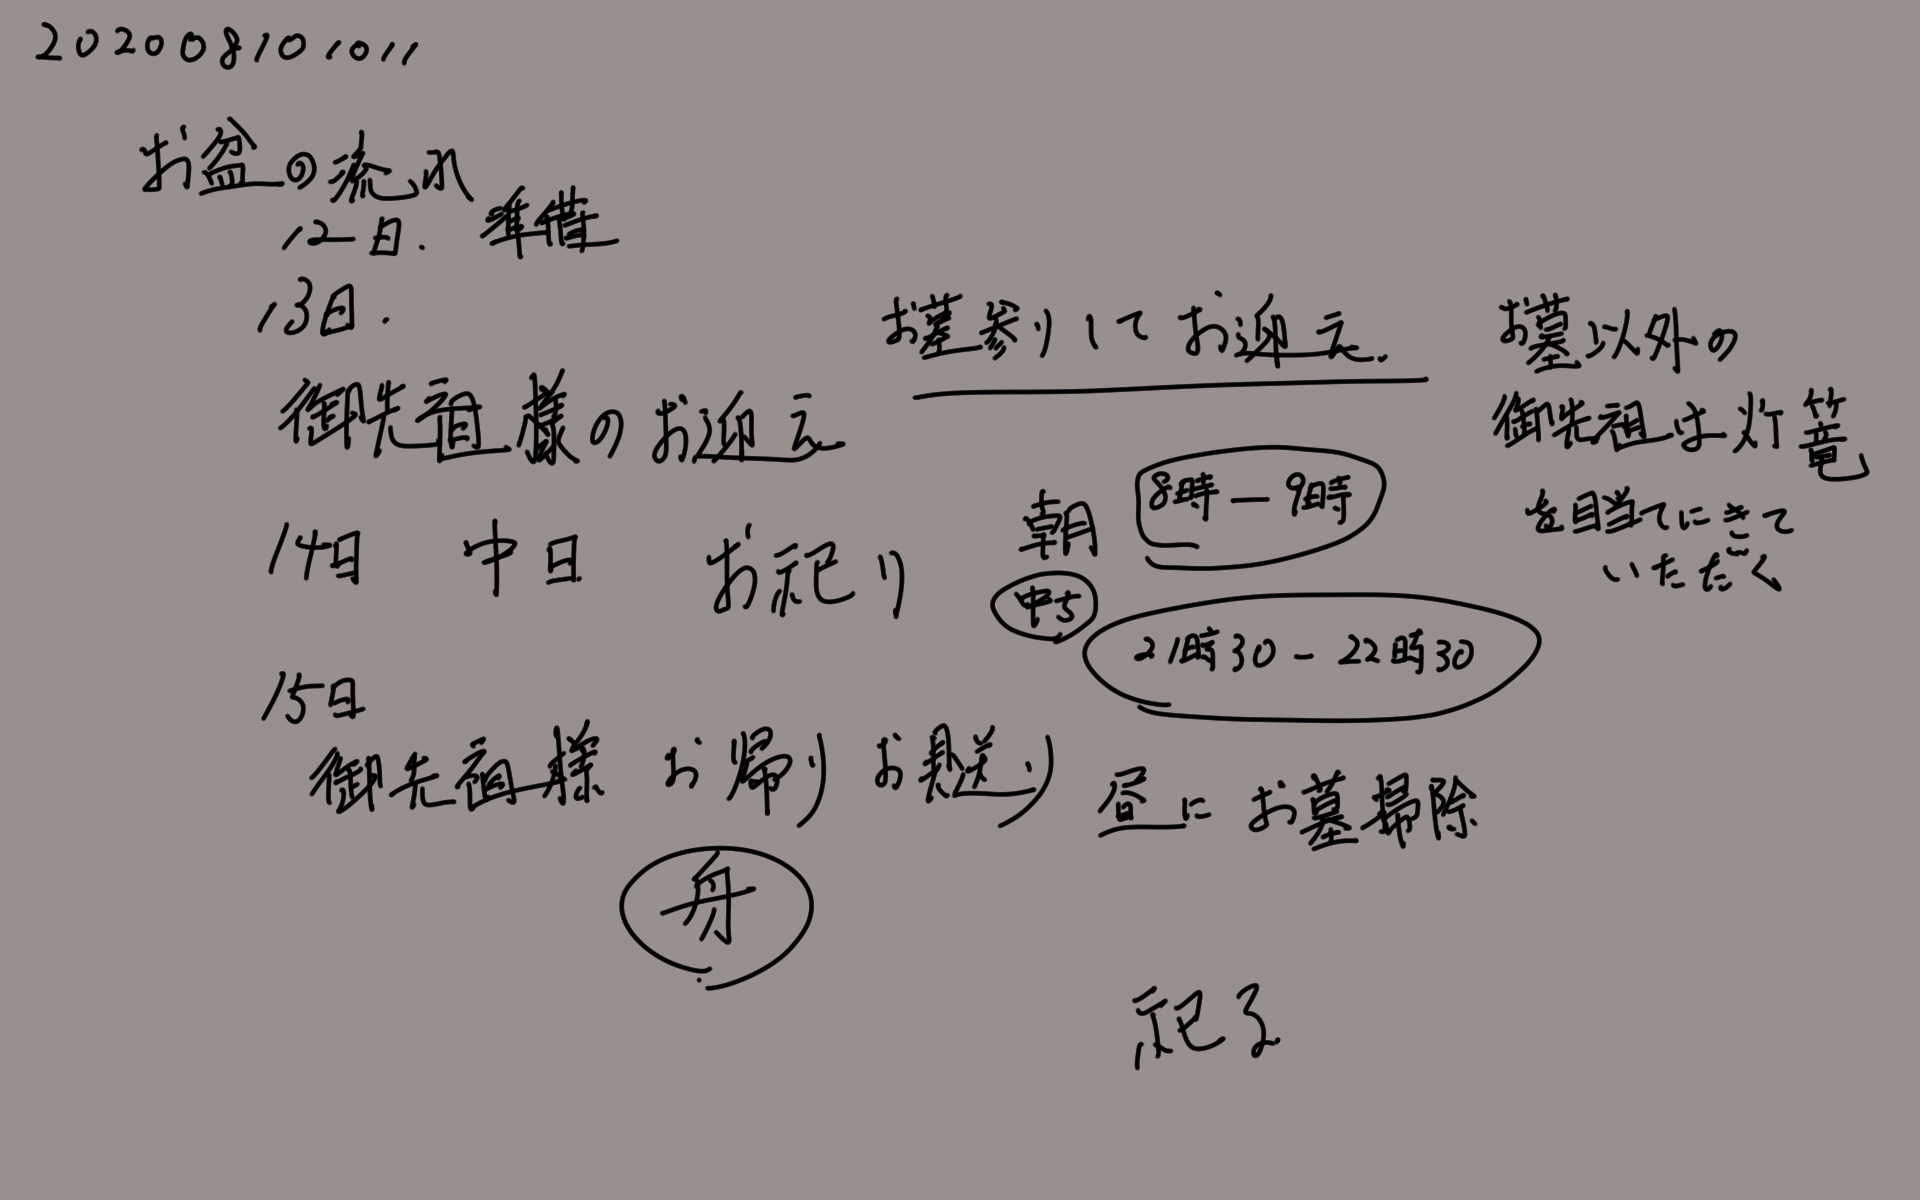 202008101011
お盆の流れ
12日. 準備
13日.
御先祖様のお迎え
お墓参りしてお迎え.
お墓以外の
御先祖は灯篭
を目当てにきて
いただく
14日 中日 お祀り
朝 8時ー9時
21時30-22時30
15日
御先祖様 お帰り お見送り 昼にお墓掃除
舟
祀る